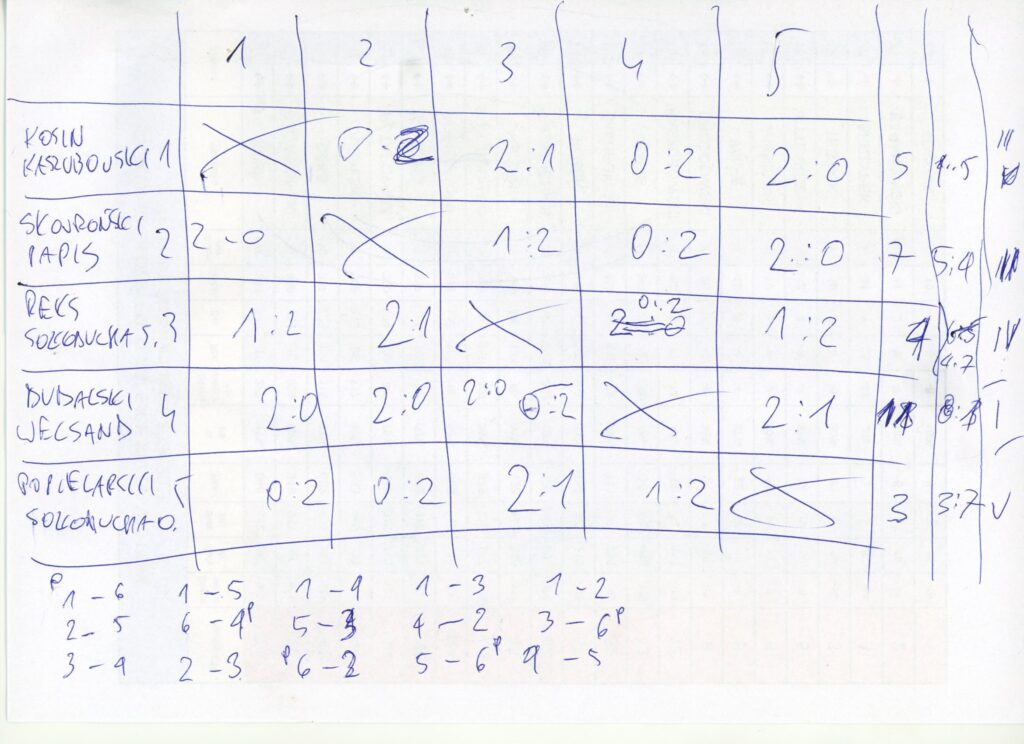 1 2 3 4 5
KOSIN
KASZUBOWSKI 1 0:2 2:1 0:2 2:0 5 5 III
SKOWROŃSKI
PAPIS 2 2-0 1:2 0:2 2:0 7 5:4
REKS 0:2
SOŁODUCHA S. 3 1:2 2:1 1:2 4 IV
4:7
DUDALSKI
WELSAND 4 2:0 2:0 2:0 0:2 2:1 I
POPIELARSKI 5 0:2 0:2 2:1 1:2 3 3:7 V
SOŁODUCHA O.
P 1-6 1-5 1-4 1-3 1-2
2-5 6-4 P 5-3 4-2 3-6 P
3-4 2-3 P 6-2 5-6 P 4-5